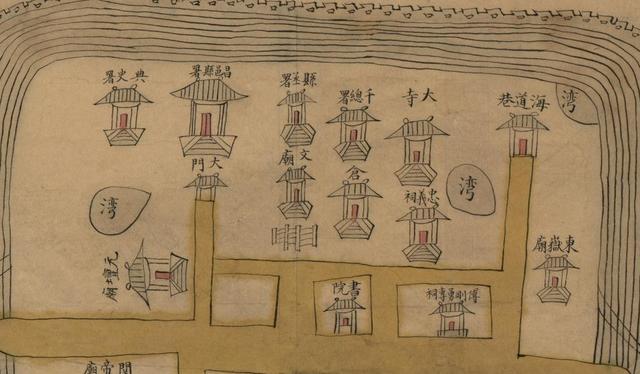 海道巷
湾
大寺
千總署
縣丞署
昌邑縣署
典史署
文廟
大門
倉
忠義祠
湾
湾
東嶽廟
元壇廟
傅剛勇專祠
書院
関帝廟